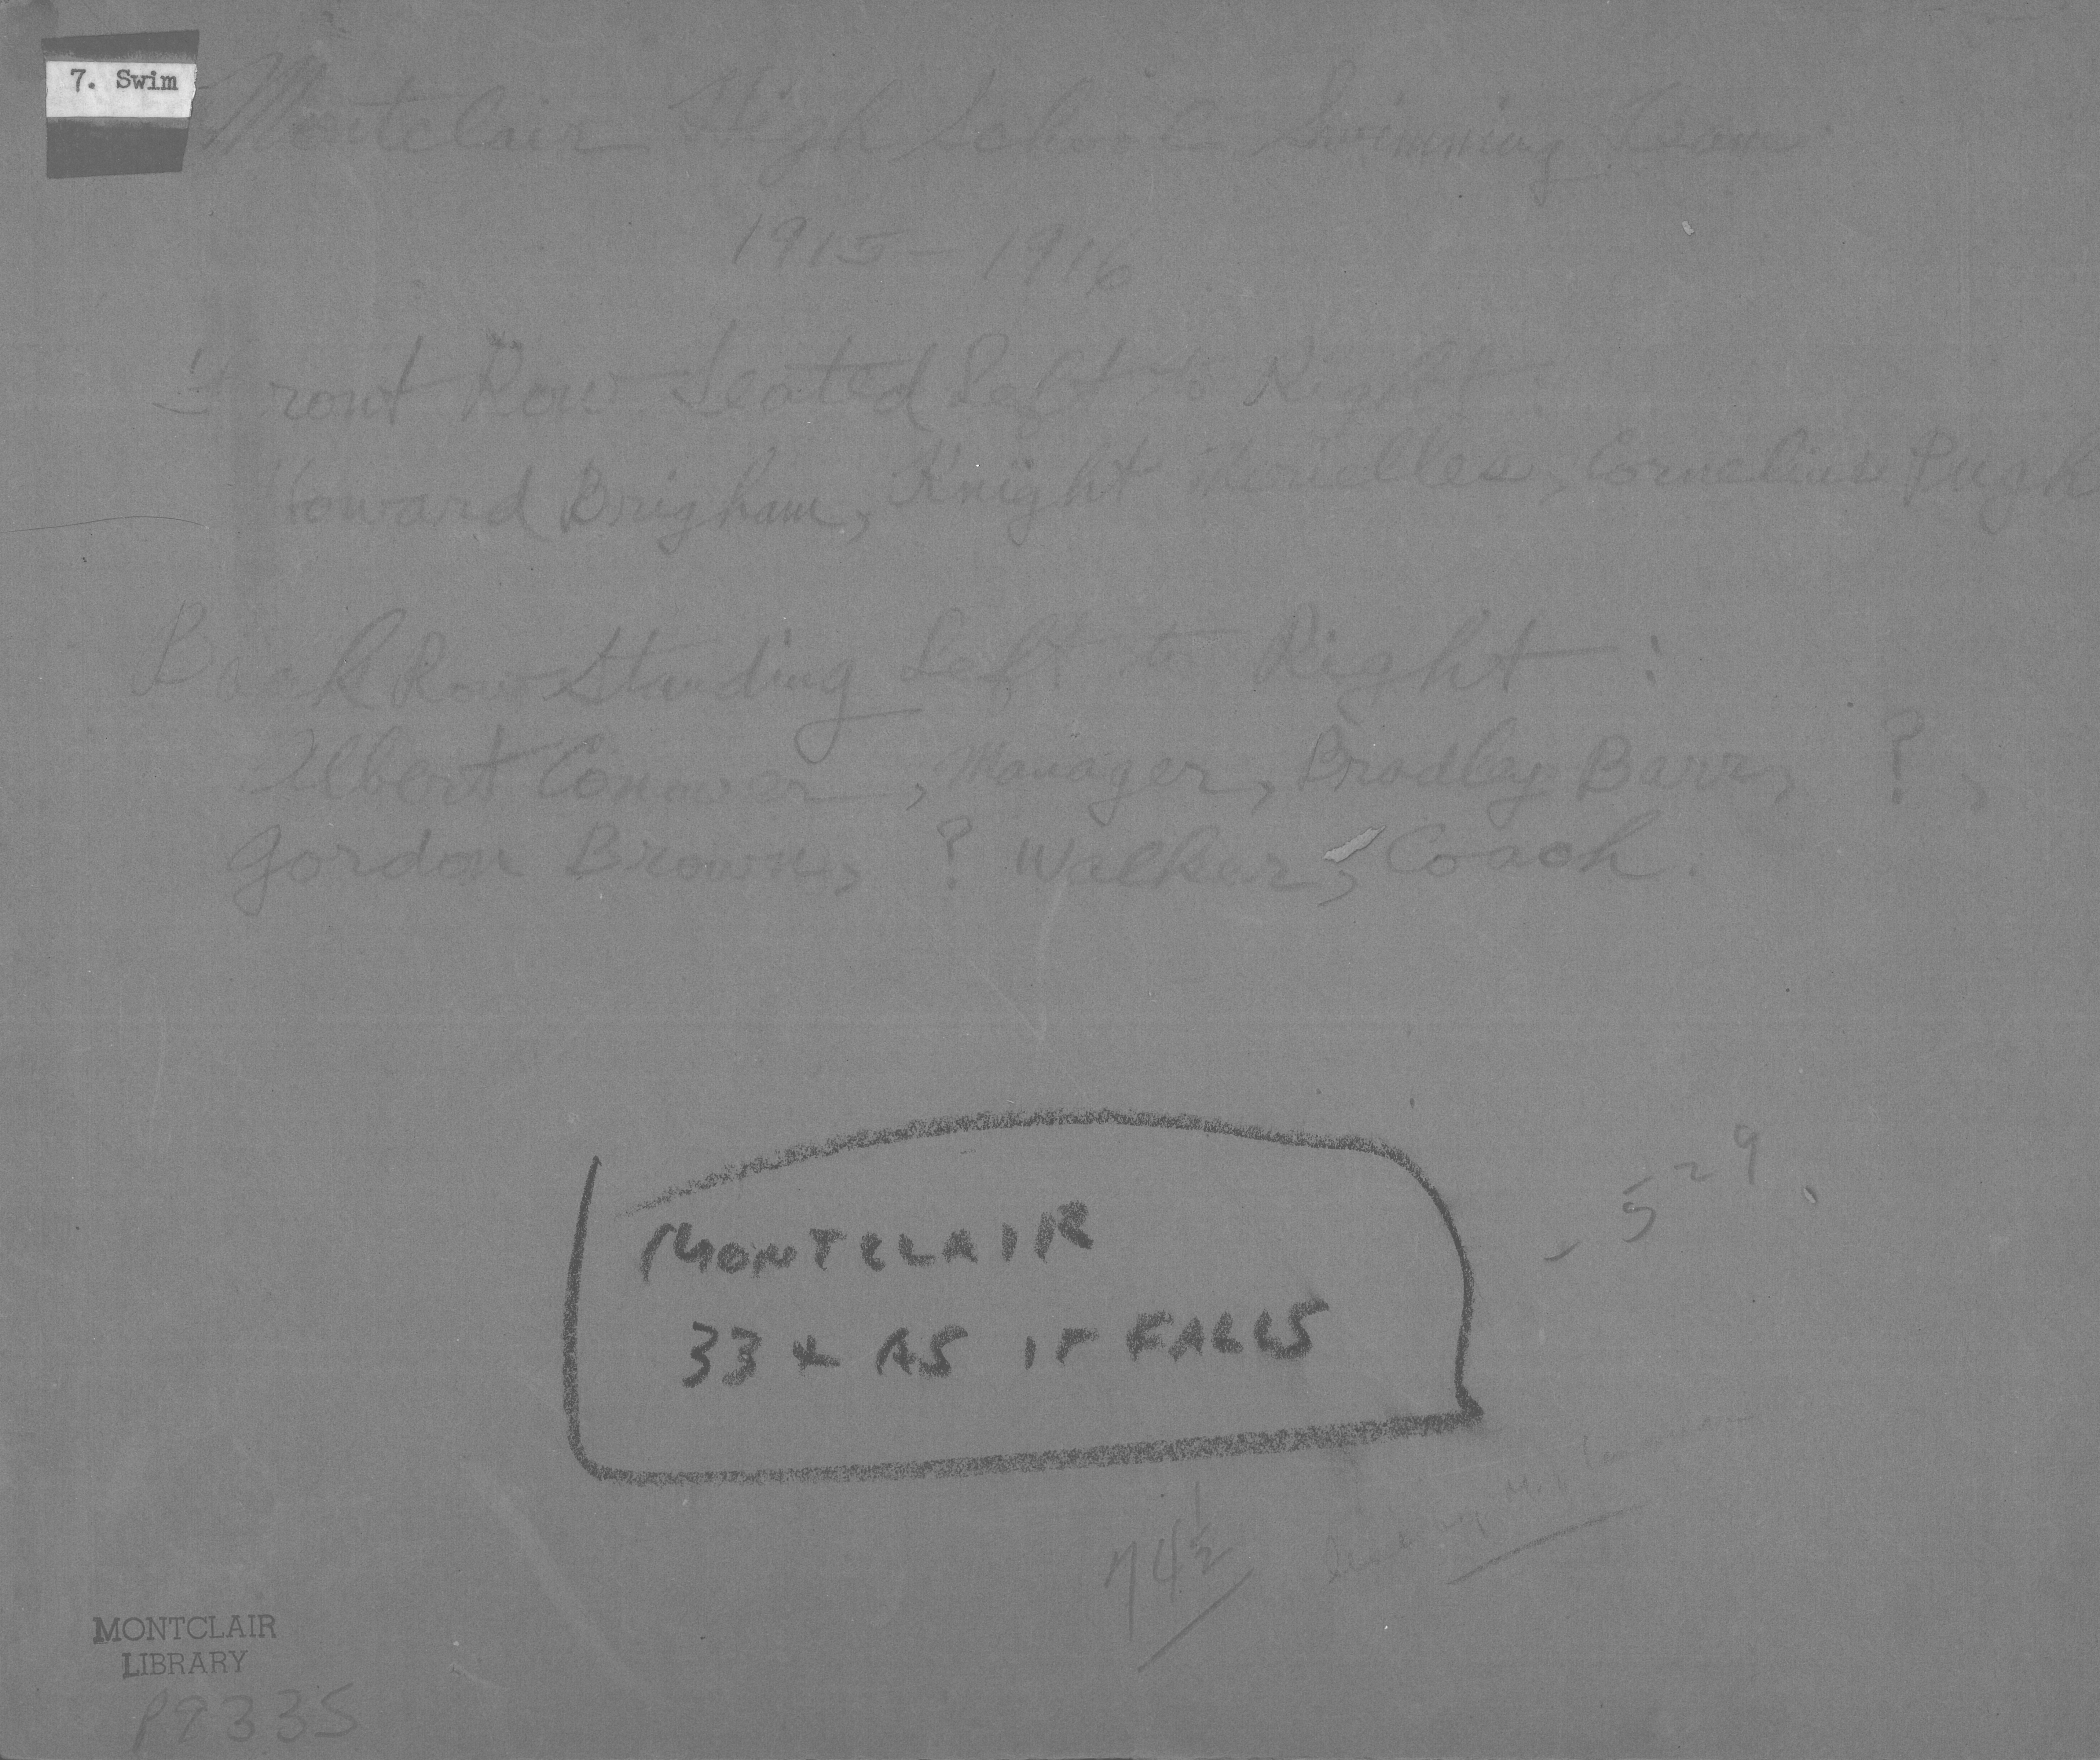 7. Swim
Montclair High School Swimming Team
1915-1916
Front Row Seated Left to Right:
Howard Brigham, Knight Merielles, Cornelius Pugh
Back Row Standing Left to Right:
Albert Conover, Manager, Bradley Barr, ?,
Gordon Brown, ? Walker, Coach.
- 5 29
MONTCLAIR
33 & AS IT FALLS
74 1/2
MONTCLAIR
LIBRARY
P9335